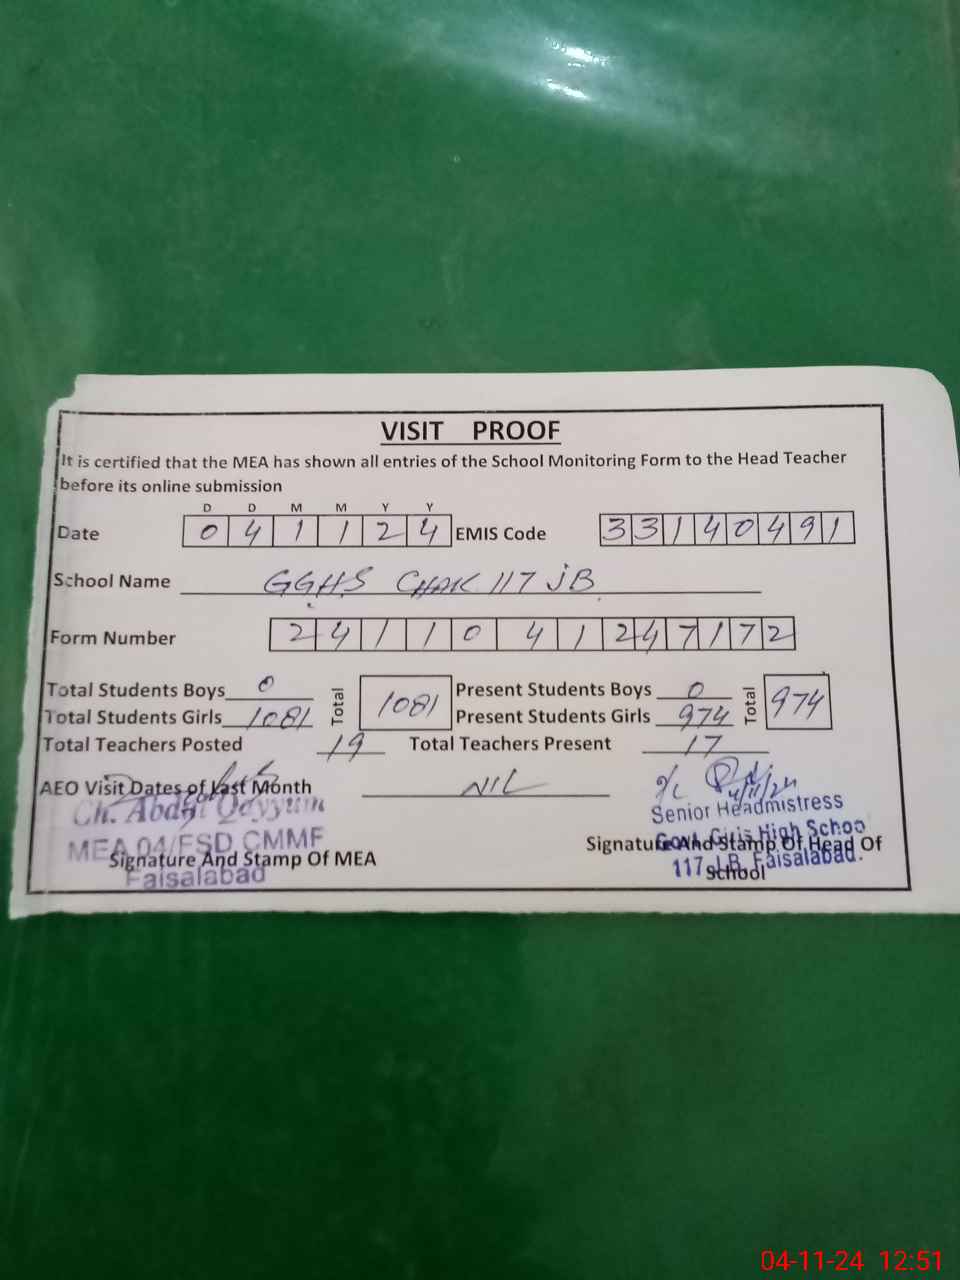 VISIT PROOF
It is certified that the MEA has shown all entries of the School Monitoring Form to the Head Teacher
before its online submission
D D M M Y Y
Date 0 4 1 1 2 4 EMIS Code 3 3 1 4 0 4 9 1
School Name GGHS CHAK 117 JB
Form Number 2 4 1 1 0 4 1 2 4 7 1 7 2
Total Students Boys 0 Total 1081 Present Students Boys 0 Total 974
Total Students Girls 1081 Present Students Girls 974
Total Teachers Posted 19 Total Teachers Present 17
AEO Visit Dates of Last Month NIL
4/11/24
Ch. Abdul Qayyum
MEA 04/FSD CMMF
Faisalabad
Signature And Stamp Of MEA
Senior Headmistress
Govt. Girls High Schoo
117 J.B. Faisalabad.
Signature And Stamp Of Head Of
School
04-11-24 12:51